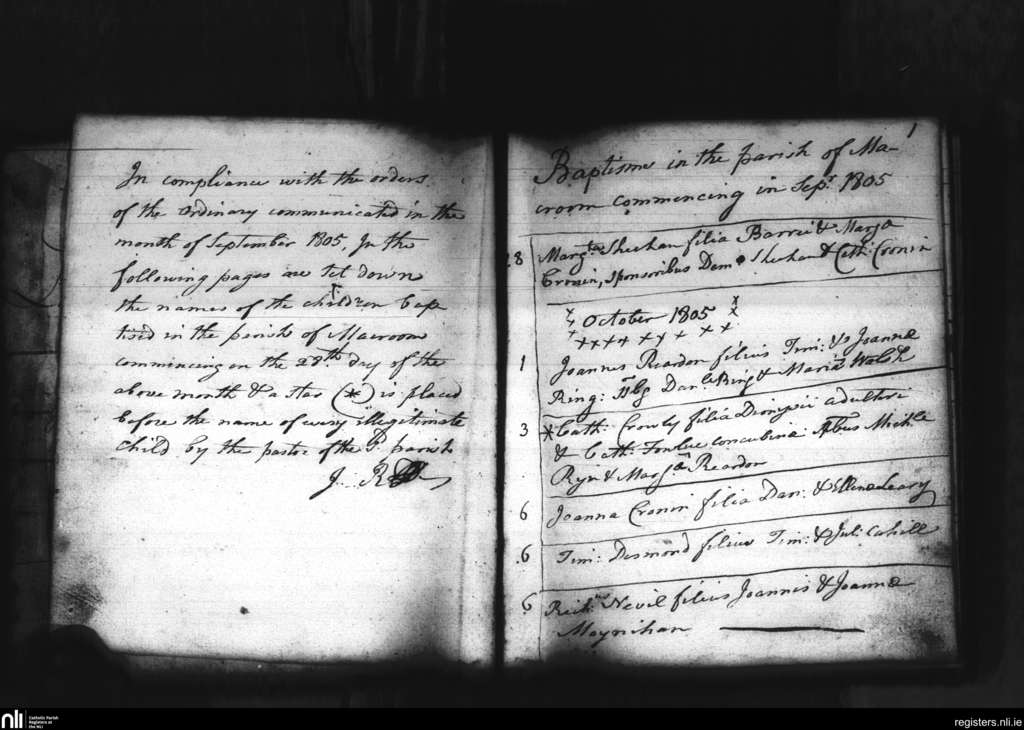 In compliance with the orders
of the Ordinary communicated in the
month of September 1805, In the
following pages are set down
the names of the children bap
tised in the parish of Macroom
commencing on the 28th day of the
above month & a star (*) is placed
before the name of every illegitimate
child by the pastor of the P. parish
J. R
1
Baptisms in the parish of Ma-
croom commencing in Sepr. 1805
28 Margta Sheehan filia Barrei & Marga
Cronin, sponsoribus Dem Shehan & Cath: Cronin
October 1805
1 Joannes Reardon filius Tim: & Joanna
Ring: Danle Ring & Maria Walsh
3 * Cath: Crowly filia Dionysii adulteri
& Cath: concubina Michle
Ryn & Marga Reardon
6 Joanna Cronin filia Dan: & Ellena Leary
6 Tim: Desmond filius Tim: & Jul: Cahill
6 Richd Nevil filius Joannis & Joanna
Moynihan
nli
Catholic Parish
Registers at
the NLI
registers.nli.ie